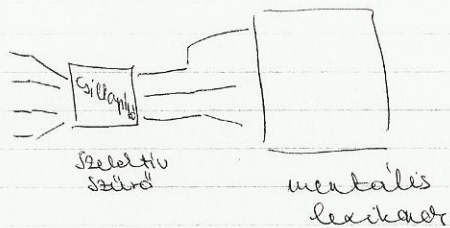 Csillapító
szelektív
szűrő
mentális
lexikonok